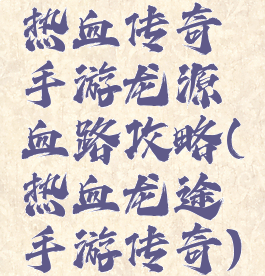 热血传奇
手游龙源
血路攻略(
热血龙途
手游传奇)